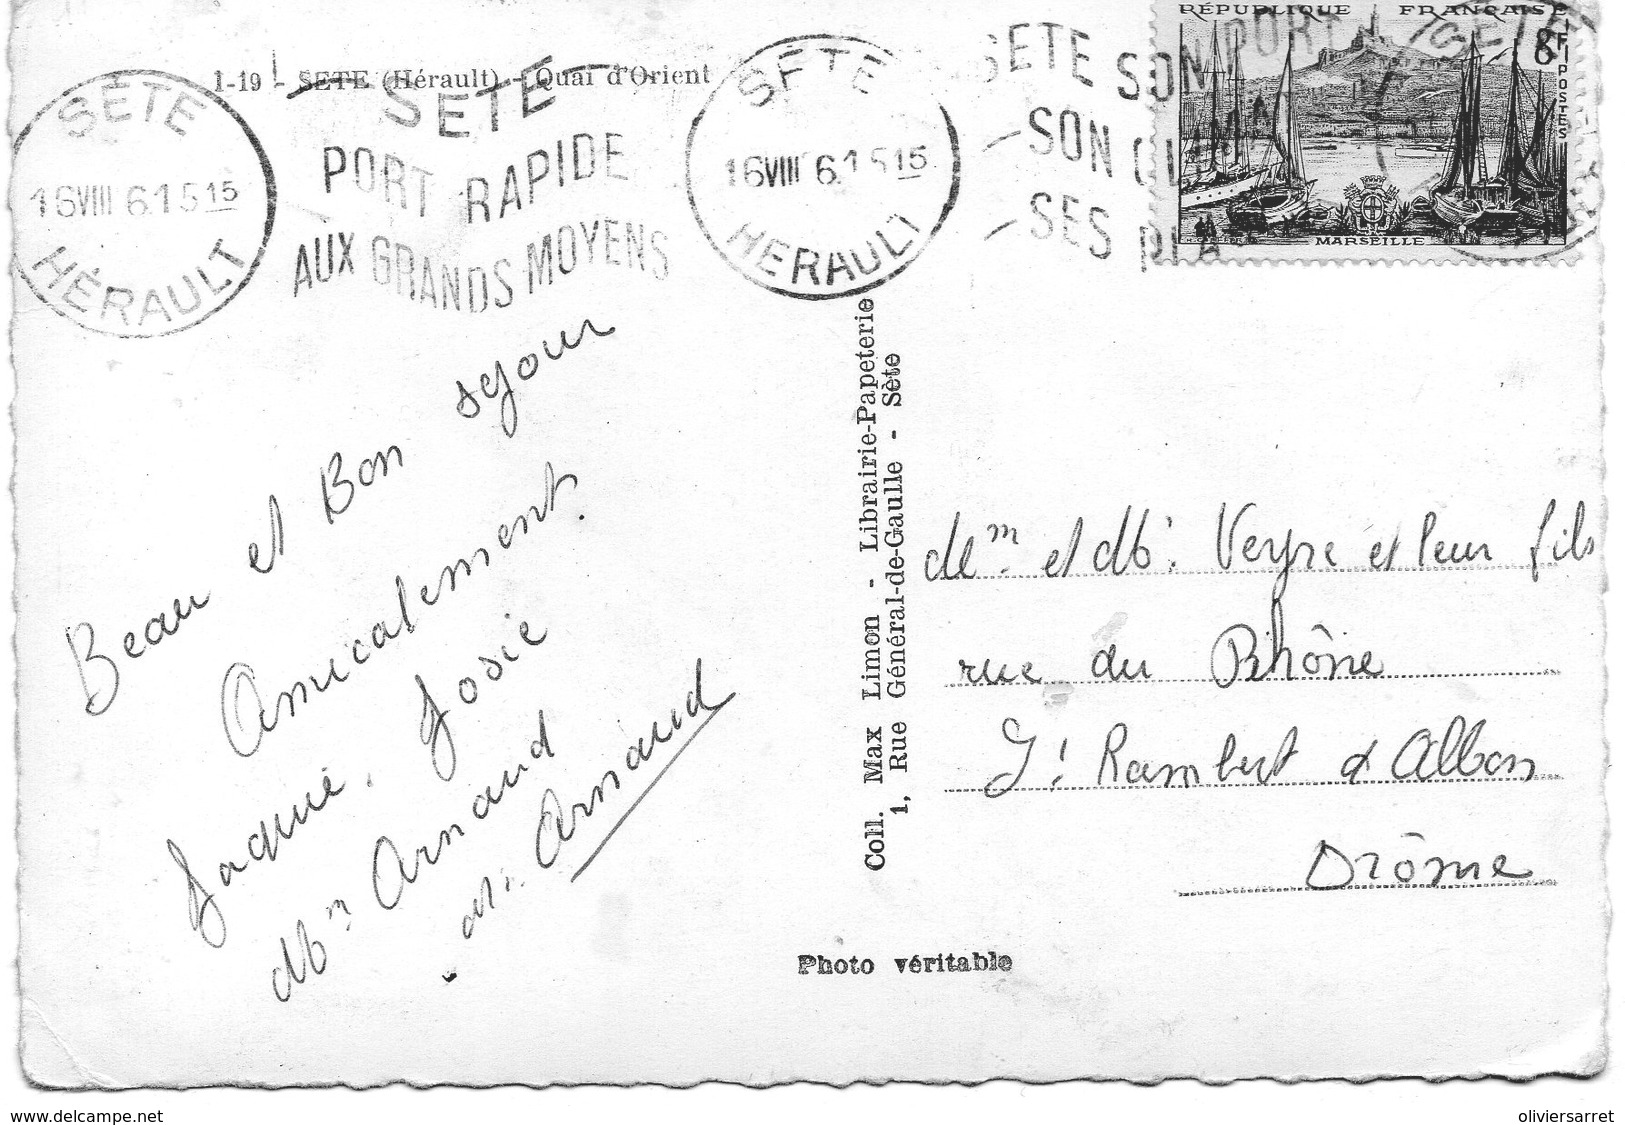 1-19 - SETE (Hérault) - Quai d'Orient
SÈTE
16 VIII 61 515
HÉRAULT
SETE
PORT RAPIDE
AUX GRANDS MOYENS
SÈTE
16 VIII 61 515
HERAULT
SETE SON PORT
SON CLIMA
SES PLA
SETE
RÉPUBLIQUE FRANÇAISE
8F
POSTES
MARSEILLE
Beau et Bon sejour
Amicalement.
Jaquie, Josie
Mm Arnaud
Mr Arnaud
Coll. Max Limon - Librairie-Papeterie
1, Rue Général-de-Gaulle - Sète
Mm. et Mr. Veyre et leur fils
rue du Rhône
St Rambert d Albon
Drôme
Photo véritable
www.delcampe.net
oliviersarret